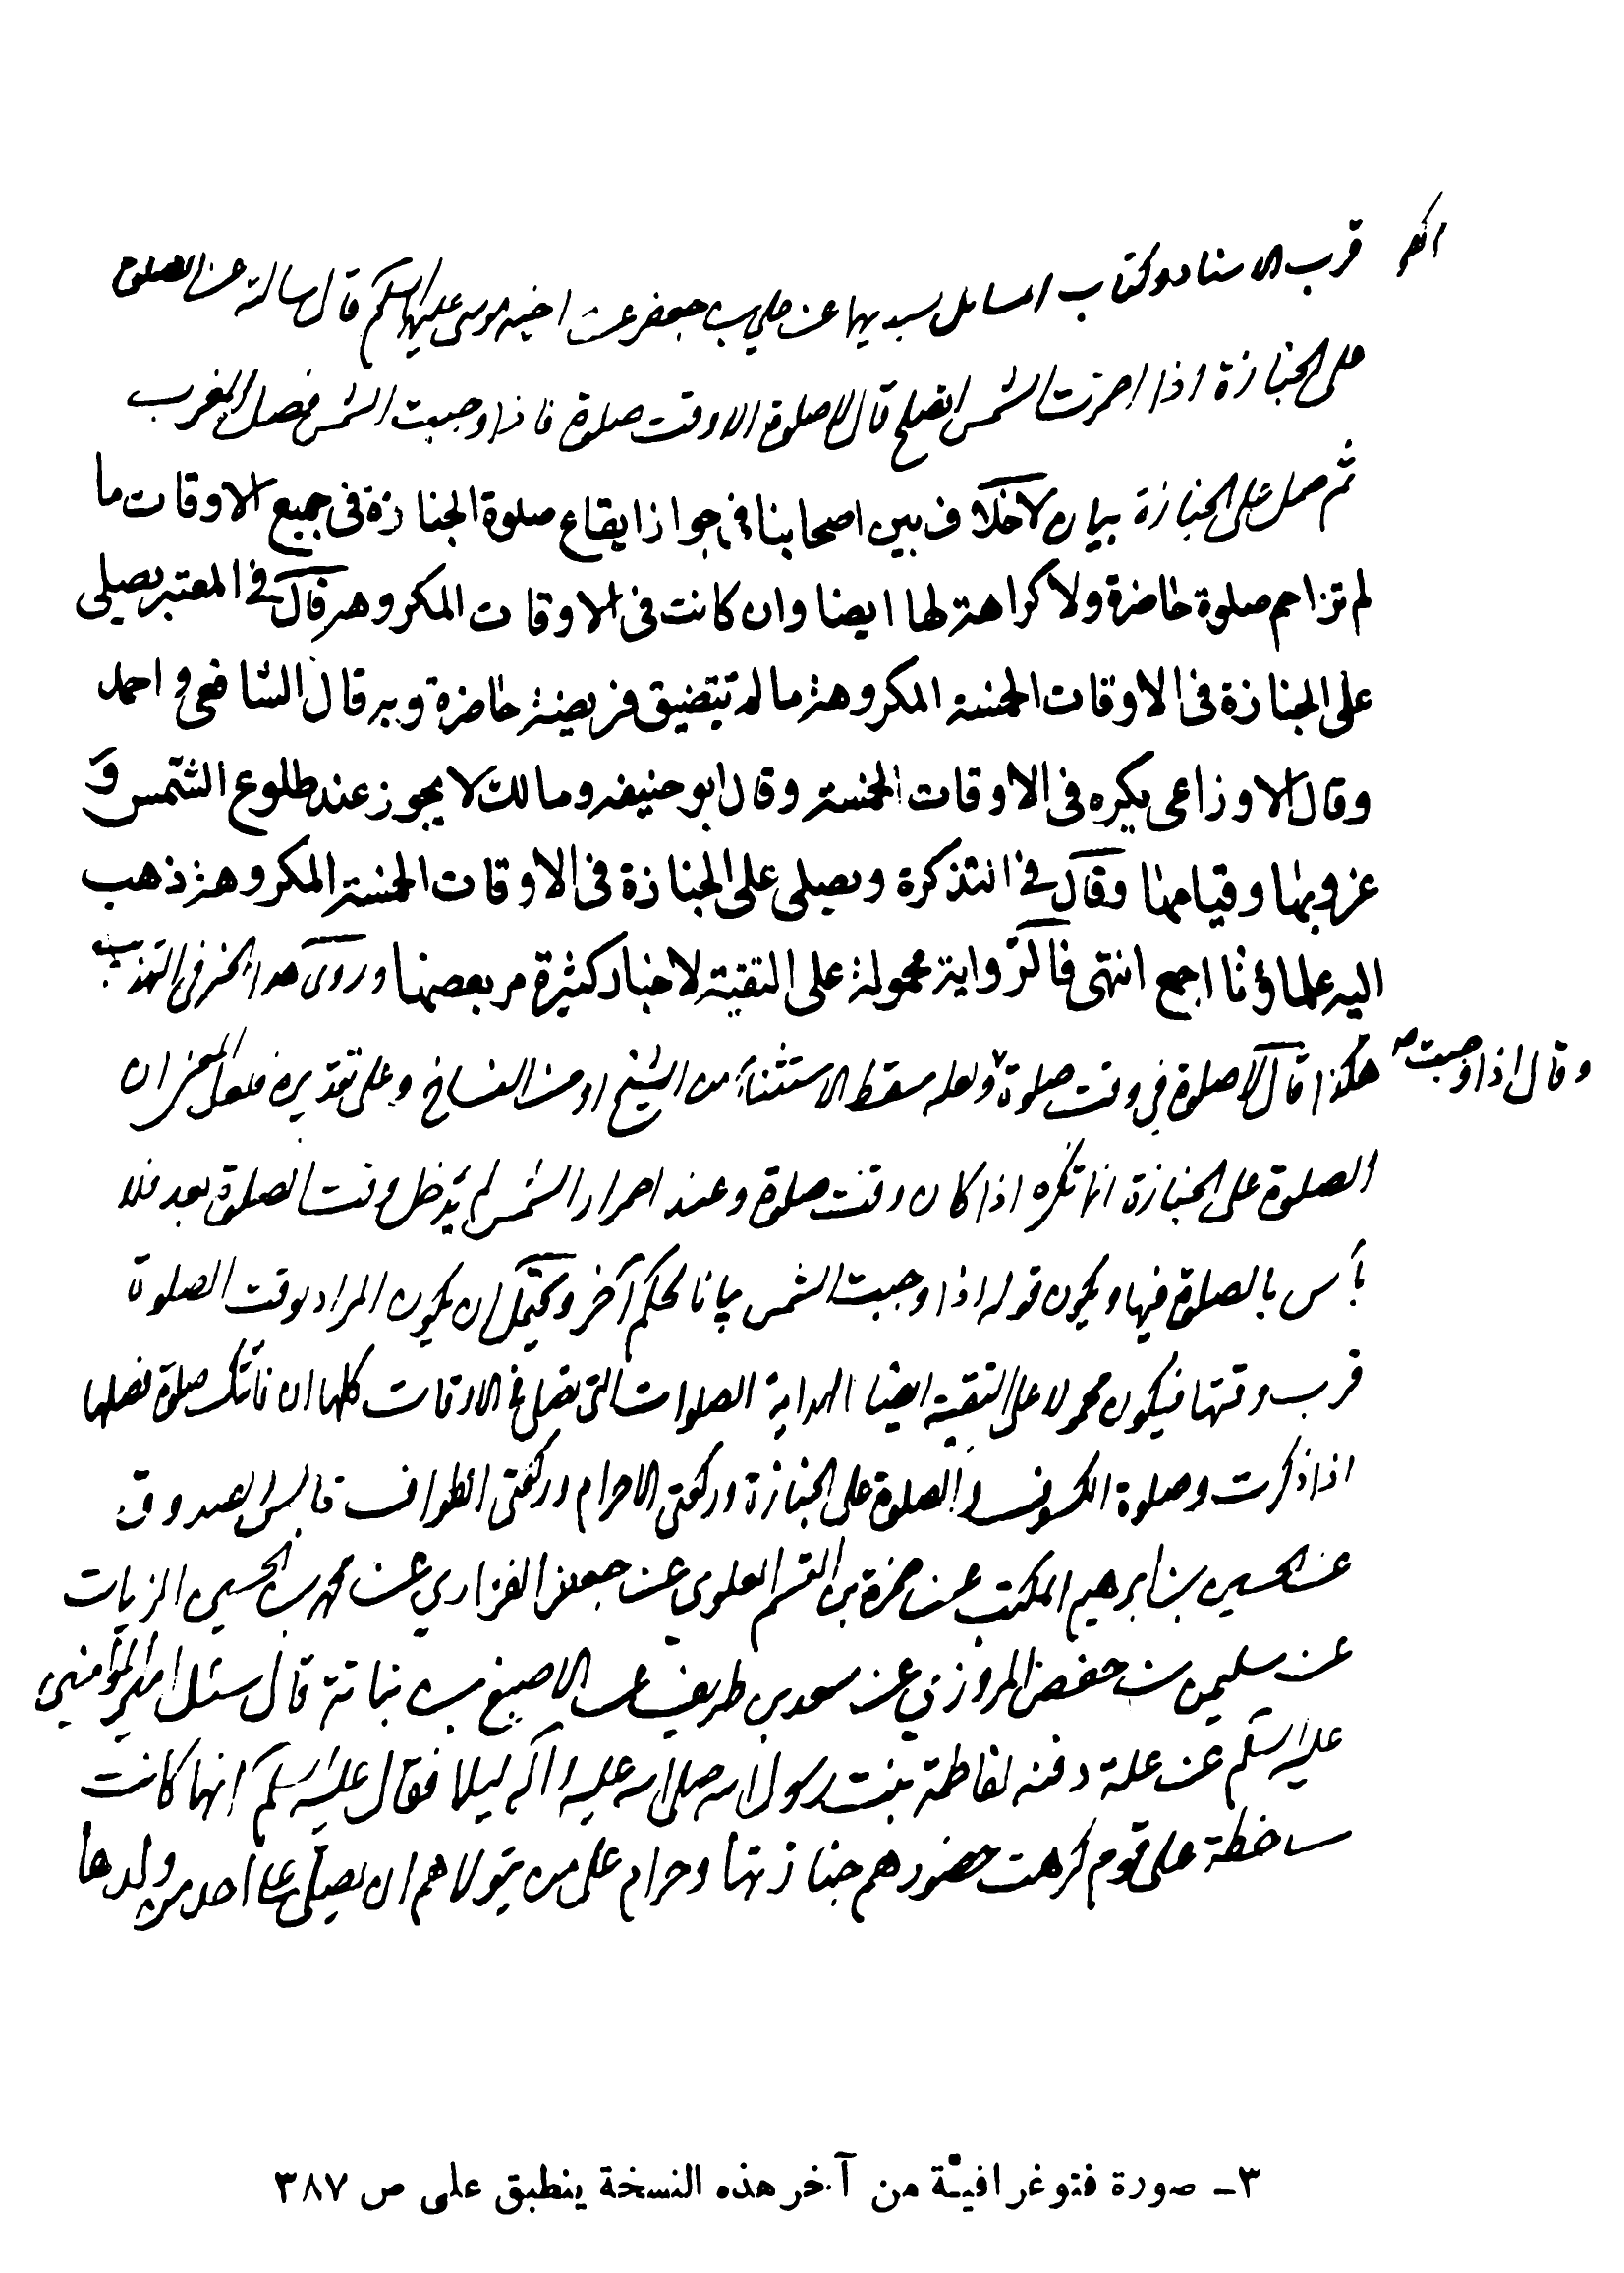 قرب الاسناد وكتاب المسايل بسنديهما عن علي بن جعفر عن اخيه موسى عليهما السلم قال سالته عن الصلوة
على الجنازة اذا احمرت الشمس ايصلح قال لا صلوة الا وقت صلوة فاذا وجبت الشمس فصل المغرب
ثم صل على الجنازة بيان لا خلاف بين اصحابنا في جواز ايقاع صلوة الجنازة في جميع الاوقات ما
لم تزاحم صلوة حاضرة ولا كراهة لها ايضا وان كانت في الاوقات المكروهة قال في المعتبر يصلى
على الجنازة في الاوقات الخمسة المكروهة ما لم تتضيق فريضة حاضرة وبه قال الشافعي و احمد
وقال الاوزاعي يكره في الاوقات الخمسة وقال ابو حنيفه ومالك لا يجوز عند طلوع الشمس و
غروبها وقيامها وقال في التذكرة ويصلى على الجنازة في الاوقات الخمسة المكروهة ذهب
اليه علماؤنا اجمع انتهى فالرواية محمولة على التقية لاخبار كثيرة مر بعضها وروى هذا الخبر في التهذيب
هكذا قال لا صلوة في وقت صلوة وقال اذا وجبت ولعله سقط الاستثناء من الشيخ او من النساخ وعلى تقديره فلعل المعنى ان
الصلوة على الجنازة انما تكره اذا كان وقت صلوة وعند احمرار الشمس لم يدخل وقت الصلوة بعد فلا
بأس بالصلوة فيها ويكون قوله اذا وجبت الشمس بيانا لحكم آخر ويحتمل ان يكون المراد بوقت الصلوة
قرب وقتها فيكون محمولا على التقية ايضا الهداية الصلوات التي تصلى في الاوقات كلها ان فاتتك صلوة تصليها
اذا ذكرت وصلوة الكسوف والصلوة على الجنازة وركعتي الاحرام وركعتي الطواف مجالس الصدوق
عن الحسين بن ابرهيم المكتب عن حمزة بن القسم العلوي عن جعفر الفزاري عن محمد بن الحسين الزيات
عن سليمن بن حفص المروزي عن سعد بن طريف عن الاصبغ بن نباتة قال سئل امير المؤمنين
عليه السلم عن علة دفنه لفاطمة بنت رسول الله صلى الله عليه و آله ليلا فقال عليه السلم انها كانت
ساخطة على قوم كرهت حضورهم جنازتها وحرام على من يتولاهم ان يصلى على احد من ولدها
٣ـ صورة فتوغرافيّة من آخر هذه النسخة ينطبق على ص ٣٨٧